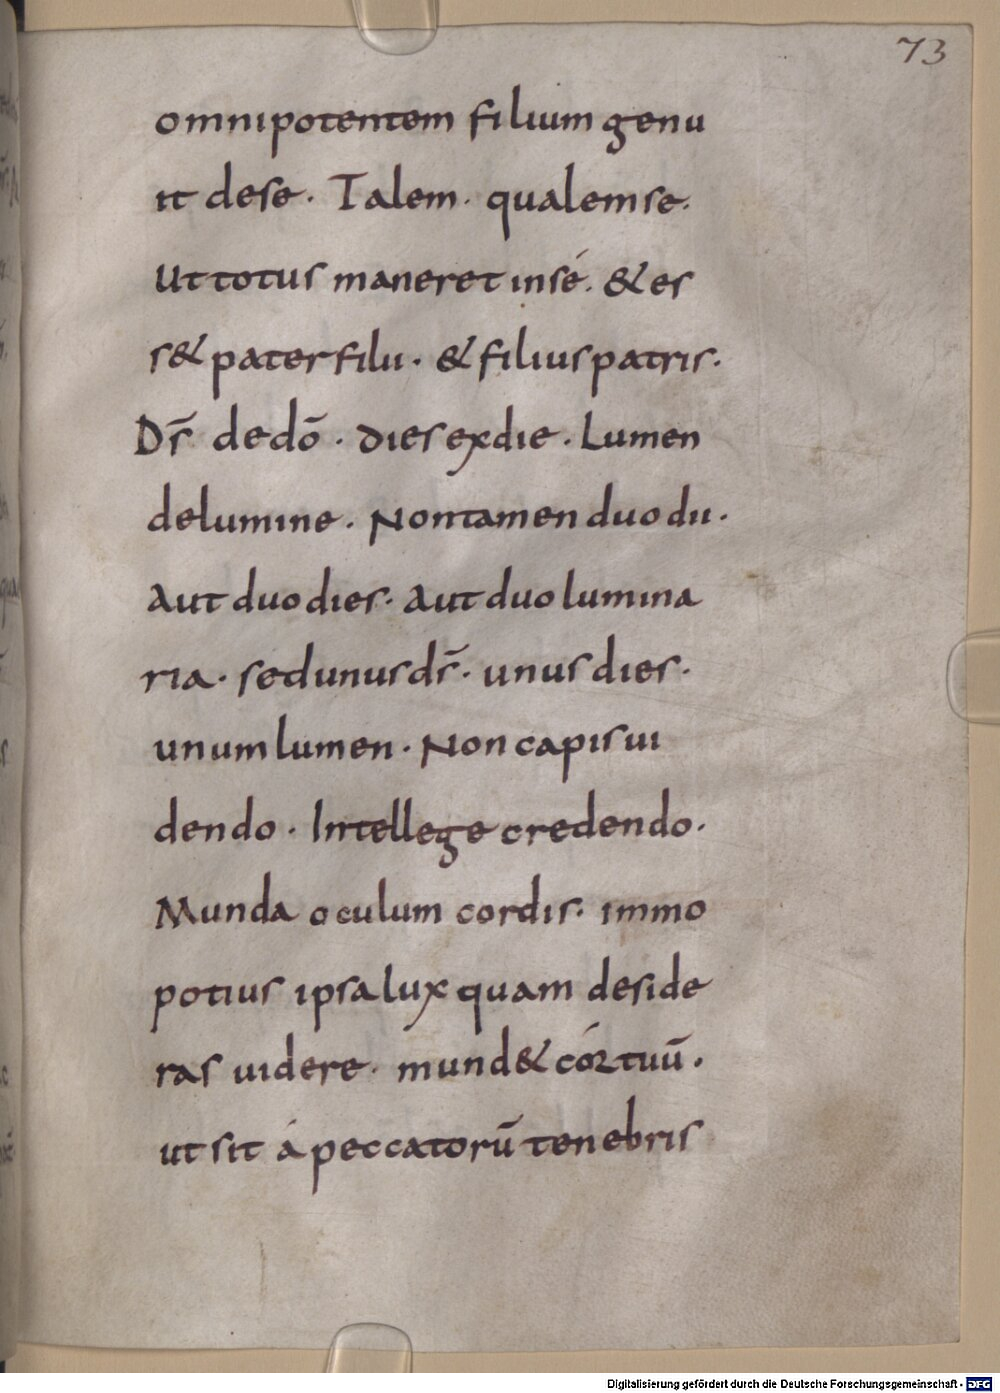 73
omnipotentem filium genu
it dese · Talem · qualemse·
Ut totus maneret insé · & es
s& pater filii · & filius patris ·
Dr̄ dedō · dies exdie · Lumen
delumine · Nontamen duo dii ·
Aut duo dies · Aut duo lumina
ria · sed unus ds̄ · unus dies ·
unum lumen · Non capis ui
dendo · Intellege credendo ·
Munda oculum cordis · immo
potius ipsa lux quam deside
ras uidere · mund& cór tuū ·
ut sit á peccatorū tenebris
Digitalisierung gefördert durch die Deutsche Forschungsgemeinschaft - DFG